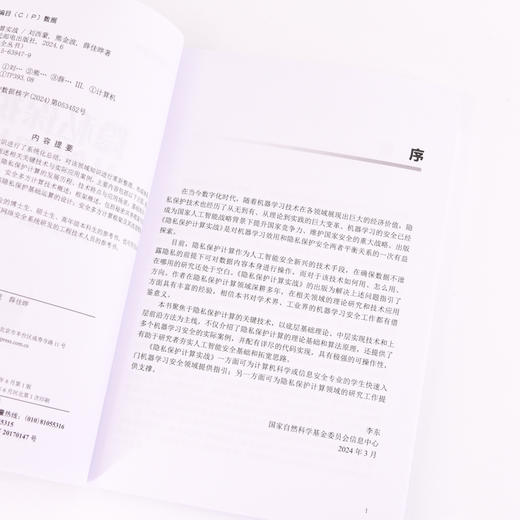 编目（CIP）数据
算实战 / 刘西蒙，熊金波，薛佳晔著
民邮电出版社，2024.6
全丛书）
5-63947-9
①刘… ②熊… ③薛… III. ①计算机
①TP393.08
数据核字(2024)第053452号
内容提要
薛佳晔
北京市丰台区成寿寺路11号
年6月第1版
年6月河北第1次印刷
质量热线：(010)81055316
55315
20170147号
序
在当今数字化时代，随着机器学习技术在各领域展现出巨大的经济价值，隐
私保护技术也经历了从无到有、从理论到实践的巨大变革，机器学习的安全已经
成为国家人工智能战略背景下提升国家竞争力、维护国家安全的重大战略。出版
《隐私保护计算实战》是对机器学习效用和隐私保护安全两者平衡关系的一次有益
探索。
目前，隐私保护计算作为人工智能安全新兴的技术手段，在确保数据不泄
露隐私的前提下可对数据内容本身进行操作，而对于该技术如何用、怎么用、
在哪用的研究还处于空白。《隐私保护计算实战》的出版为解决上述问题指引了
方向。作者在隐私保护领域深耕多年，在相关领域的理论研究和技术应用
方面具有丰富的经验，相信本书对学术界、工业界的机器学习安全工作都有借
鉴意义。
本书聚焦于隐私保护计算的关键技术，以底层基础理论、中层实现技术和上
层前沿方法为主线，不仅介绍了隐私保护计算的理论基础和算法原理，还提供了
多个机器学习安全的实际案例，并配有详尽的代码实现，具有极强的可操作性，
有助于研究者夯实人工智能安全基础和拓宽思路。
《隐私保护计算实战》一方面可为计算机科学或信息安全专业的学生快速入
门机器学习安全领域提供指引；另一方面可为隐私保护计算领域的研究工作提
供支撑。
李东
国家自然科学基金委员会信息中心
2024年3月
1